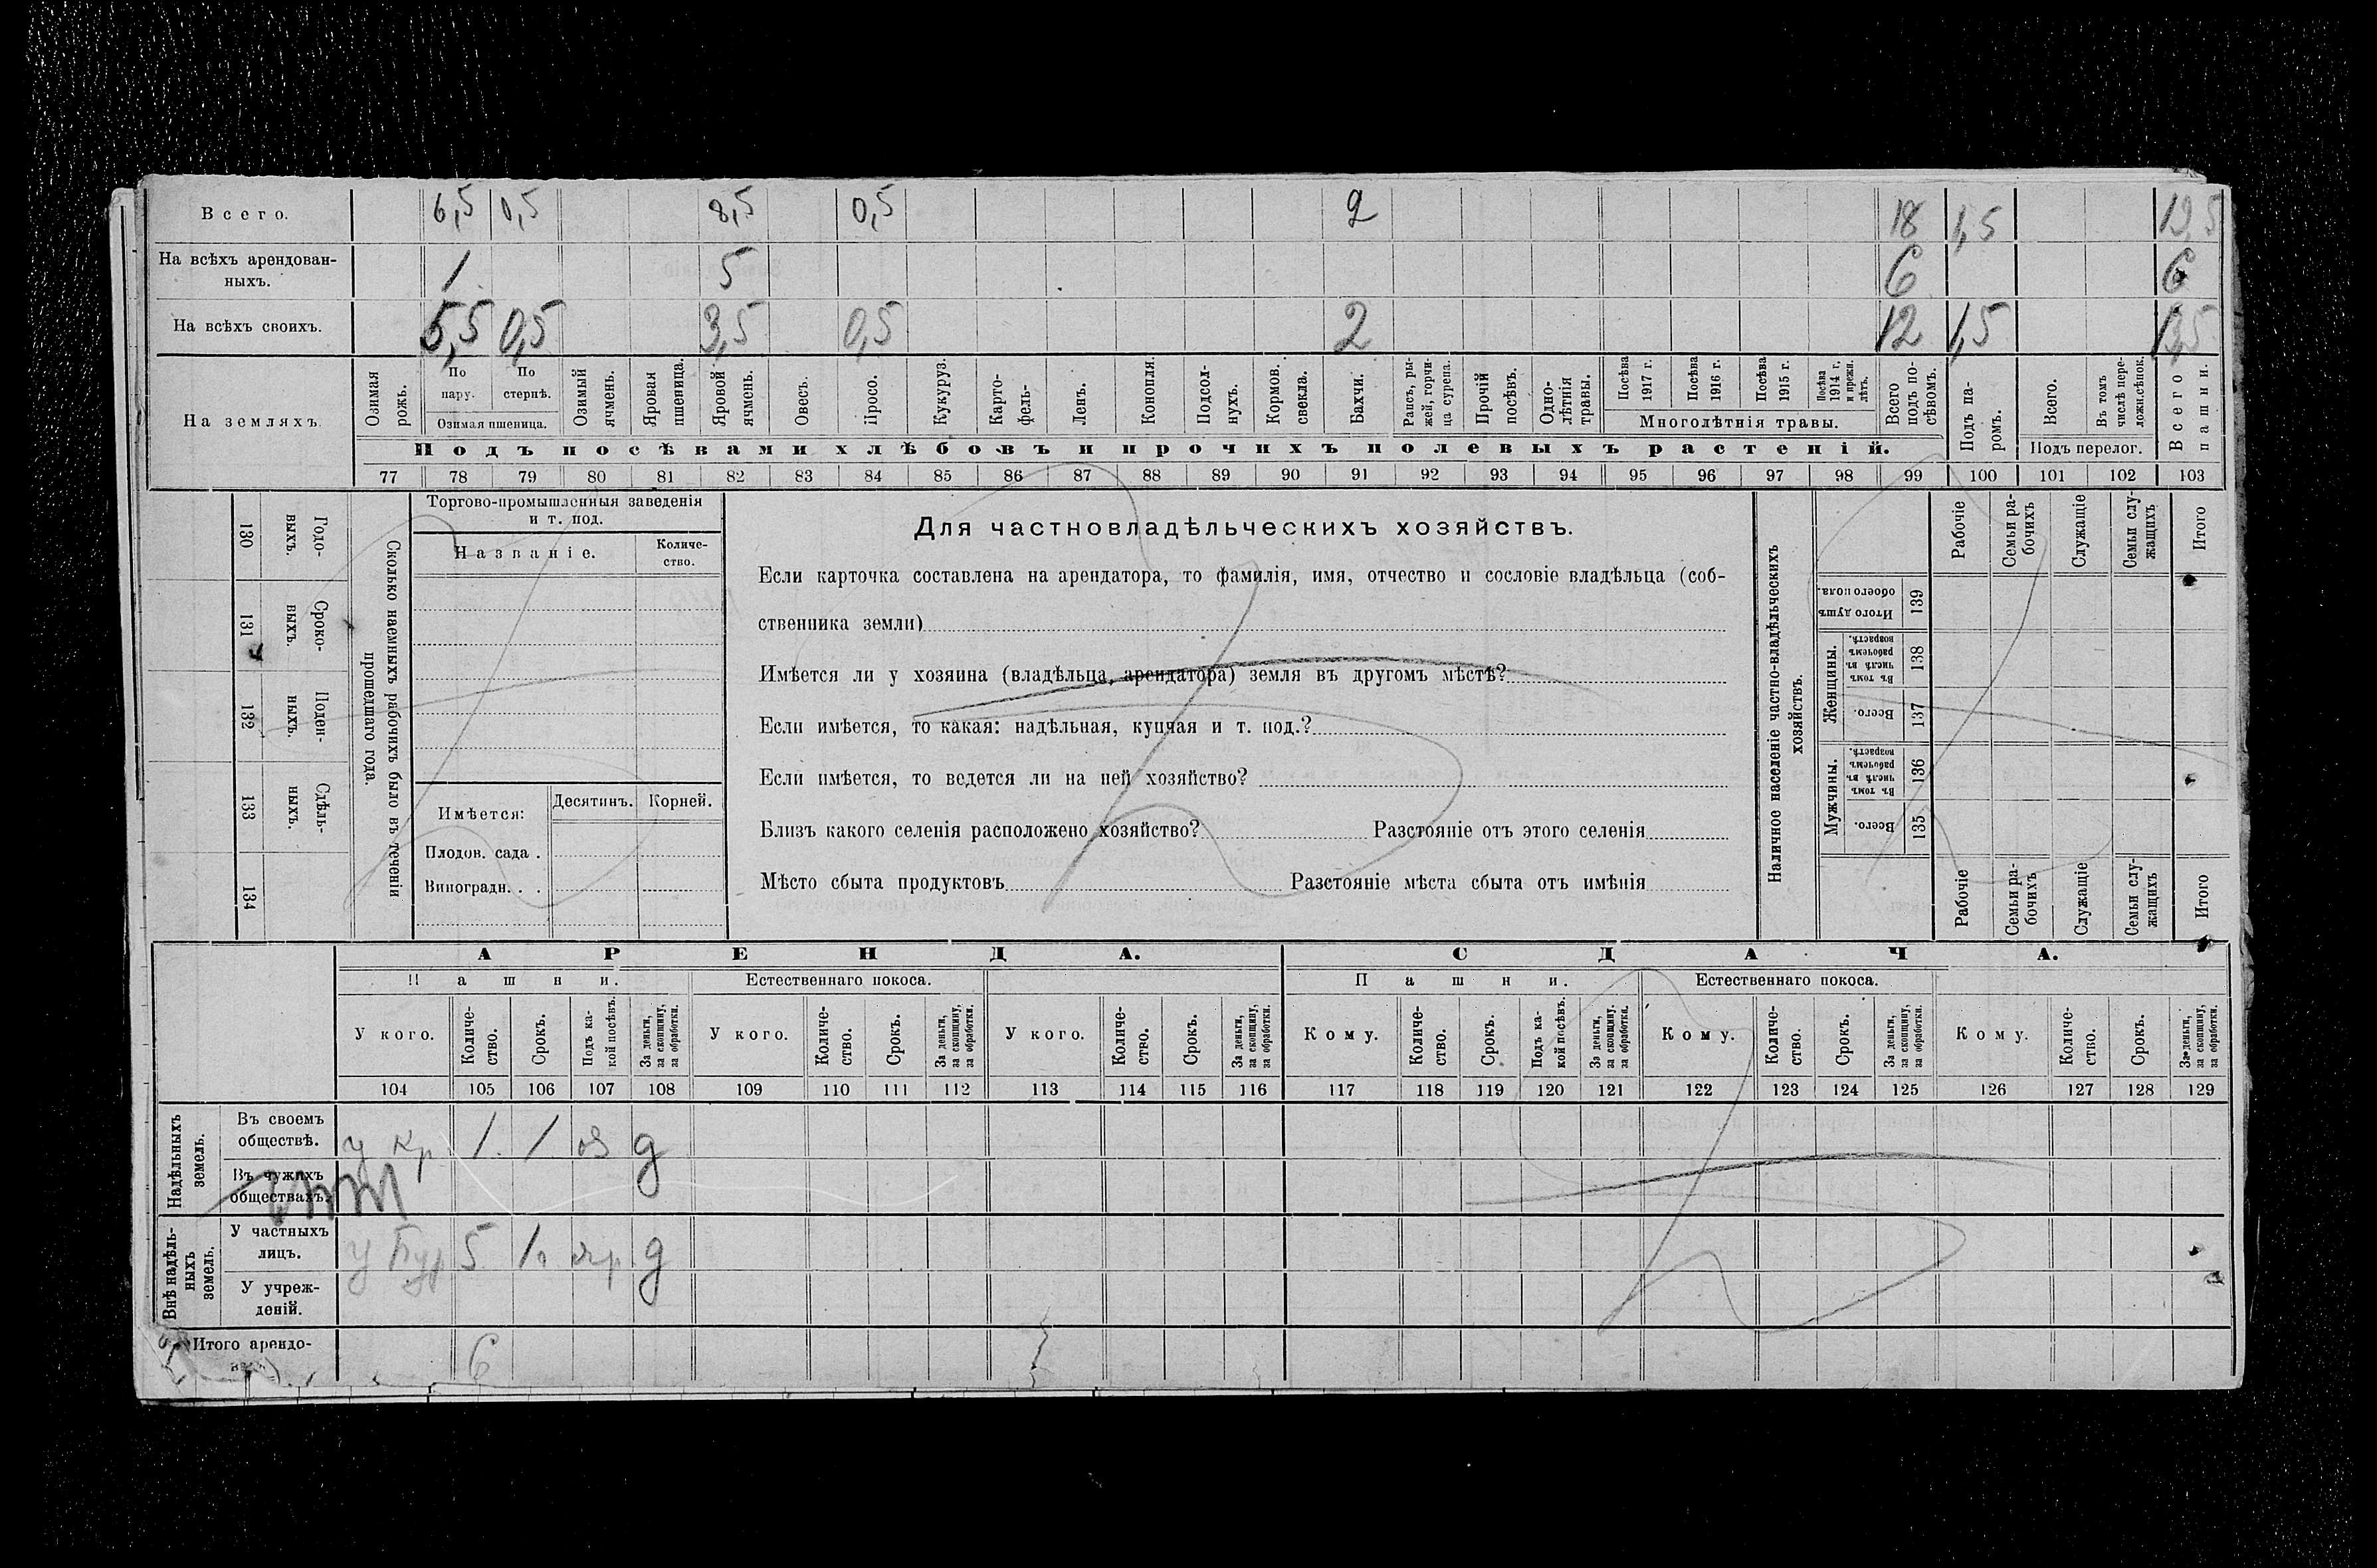 Всего. 6,5 0,5 8,5 0,5 2 18 1,5 19,5
На всѣхъ арендован-
ныхъ. 1 5 6 6
На всѣхъ своихъ. 5,5 0,5 3,5 0,5 2 12 1,5 13,5
На земляхъ.
Озимая рожь.
По пару.
По стернѣ.
Озимая пшеница.
Озимый ячмень.
Яровая пшеница.
Яровой ячмень.
Овесъ.
Просо.
Кукуруз.
Карто-
фель-
Ленъ.
Конопля.
Подсол-
нухъ.
Кормов.
свекла.
Бахчи.
Рапсъ, ры-
жей, горчи
ца сурепа.
Прочій
посѣвъ.
Одно-
лѣтнія
травы.
Посѣва
1917 г.
Посѣва
1916 г.
Посѣва
1915 г.
Посѣва
1914 г.
и прежн.
лѣтъ.
Многолѣтнія травы.
Всего
подъ по-
сѣвомъ.
Подъ посѣвами хлѣбовъ и прочихъ полевыхъ растеній.
Подъ па-
ромъ.
Всего.
Въ томъ
числѣ пере-
ложн.сѣнок.
Подъ перелог.
Всего
пашни.
77 78 79 80 81 82 83 84 85 86 87 88 89 90 91 92 93 94 95 96 97 98 99 100 101 102 103
130 Годо-
выхъ.
131 Сроко-
выхъ.
132 Поден-
ныхъ.
133 Сдѣль-
ныхъ.
134
Сколько наемныхъ рабочихъ было въ теченіи
прошедшаго года.
Торгово-промышленныя заведенія
и т. под.
Названіе.
Количе-
ство.
Имѣется:
Десятинъ. Корней.
Плодов. сада .
Виноградн. . .
Для частновладѣльческихъ хозяйствъ.
Если карточка составлена на арендатора, то фамилія, имя, отчество и сословіе владѣльца (соб-
ственника земли)
Имѣется ли у хозяина (владѣльца, арендатора) земля въ другомъ мѣстѣ?
Если имѣется, то какая: надѣльная, купчая и т. под.?
Если имѣется, то ведется ли на ней хозяйство?
Близъ какого селенія расположено хозяйство? Разстояніе отъ этого селенія
Мѣсто сбыта продуктовъ Разстояніе мѣста сбыта отъ имѣнія
Наличное населеніе частно-владѣльческихъ
хозяйствъ.
Рабочіе
Семьи ра-
бочихъ
Служащіе
Семьи слу-
жащихъ
Итого
Итого душъ
обоего пола.
139
Женщины.
Въ томъ
числѣ въ
рабочемъ
возрастѣ.
138
Всего.
137
Мужчины.
Въ томъ
числѣ въ
рабочемъ
возрастѣ.
136
Всего.
135
Рабочіе
Семьи ра-
бочихъ
Служащіе
Семьи слу-
жащихъ
Итого
АРЕНДА. СДАЧА.
Пашни. Естественнаго покоса. Пашни. Естественнаго покоса.
У кого.
Количе-
ство.
Срокъ.
Подъ ка-
кой посѣвъ.
За деньги,
за скопщину,
за обработки.
У кого.
Количе-
ство.
Срокъ.
За деньги,
за скопщину,
за обработки.
У кого.
Количе-
ство.
Срокъ.
За деньги,
за скопщину,
за обработки.
Кому.
Количе-
ство.
Срокъ.
Подъ ка-
кой посѣвъ.
За деньги,
за скопщину,
за обработки.
Кому.
Количе-
ство.
Срокъ.
За деньги,
за скопщину,
за обработки.
Кому.
Количе-
ство.
Срокъ.
За деньги,
за скопщину,
за обработки.
104 105 106 107 108 109 110 111 112 113 114 115 116 117 118 119 120 121 122 123 124 125 126 127 128 129
Надѣльныхъ
земель.
Въ своемъ
обществѣ. у кр 1. 1 оз д
Въ чужихъ
обществахъ.
Внѣ надѣль-
ныхъ
земель.
У частныхъ
лицъ. у 5 1. яр. д
У учреж-
деній.
Итого арендо- 6